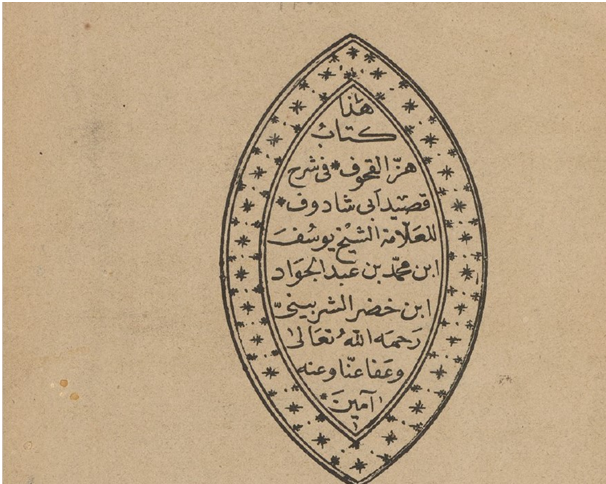 هٰذا
كتابُ
هزّ القحوف * فى شرح
قصيد ابى شادوف *
للعلّامة الشيْخ يوسُفَ
ابن محمّد بن عَبد الجوَاد
ابن خضر الشربينىّ
رَحمَه اللهُ تعَالىٰ
وعَفا عنّا وعنه
آمينَ *